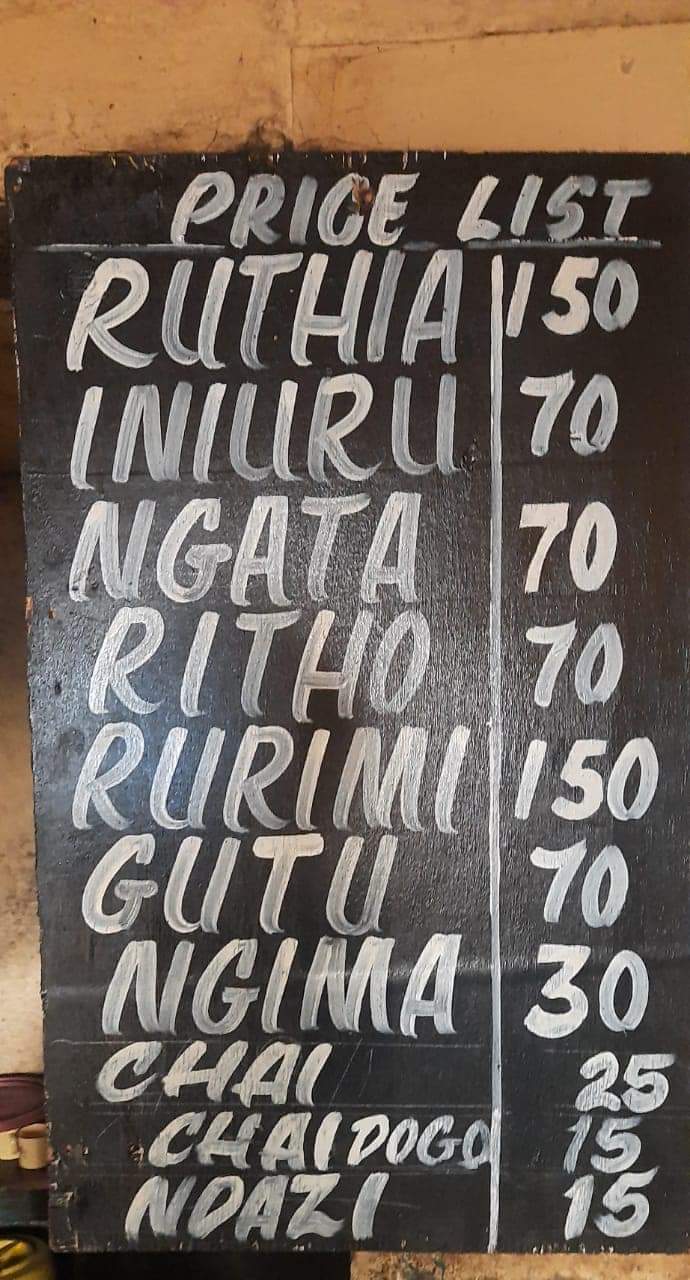 PRICE LIST
RUTHIA 150
INIURU 70
NGATA 70
RITHO 70
RURIMI 150
GUTU 70
NGIMA 30
CHAI 25
CHAI DOGO 15
NDAZI 15